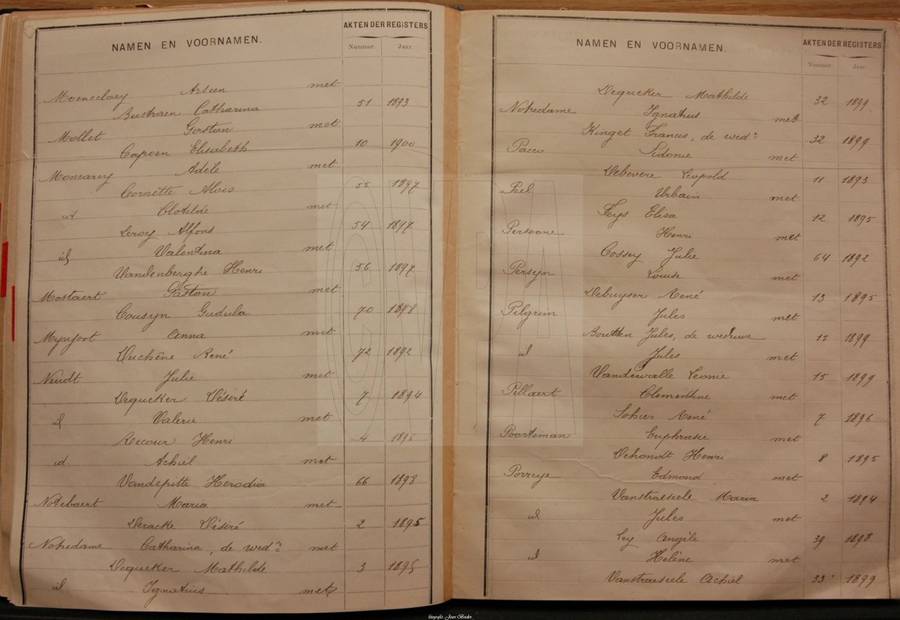 NAMEN EN VOORNAMEN.
AKTEN DER REGISTERS
Nummer Jaar
Moeneclaey Arsen met
Butstraen Catharina 51 1893
Mollet Gaston met
Capoen Elisabeth 10 1900
Monnarey Adèle met
Cornette Aloïs 55 1897
id Clotilde met
Leroy Alfons 54 1897
id Valentina met
Vandenberghe Henri 56 1897
Mostaert Gaston met
Cousyn Gudula 70 1898
Mynfort Anna met
Duchêne René 72 1892
Neudt Julie met
Dequeker Désiré 7 1894
id Valerie met
Recour Henri 4 1895
id Achiel met
Vandeputte Herodia 66 1893
Notebaert Maria met
Deracke Désiré 2 1895
Notredame Catharina, de wed? met
Dequeker Mathilde 3 1895
id Ignatius met
NAMEN EN VOORNAMEN.
AKTEN DER REGISTERS
Nummer Jaar
Dequeker Mathilde 32 1899
Notredame Ignatius met
Hinget Francis, de wed? 32 1899
Pacco Sidonie met
Debevere Leopold 11 1893
Peel Urbain met
Feys Elisa 12 1895
Persoone Henri met
Cossey Julie 64 1892
Persyn Louise met
Debuyser René 13 1895
Pilgrim Jules met
Boutten Jules, de weduwe 15 1899
id Jules met
Vandewalle Leonie 15 1899
Pillaert Clementine met
Sohier René 7 1896
Poortsman Euphrasie met
Dehondt Henri 8 1895
Porreye Edmond met
Vanstraseele Maria 2 1894
id Jules met
Ley Angèle 39 1898
id Hélène met
Vanstraeseele Achiel 33 1899